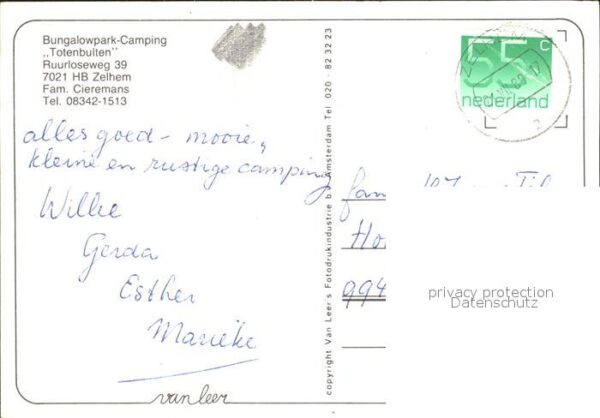 Bungalowpark-Camping
„Totenbulten"
Ruurloseweg 39
7021 HB Zelhem
Fam. Cieremans
Tel. 08342-1513
alles goed - mooie,
kleine en rustige camping
Willie
Gerda
Esther
Marieke
van leer
copyright Van Leer's Fotodrukindustrie b. Amsterdam Tel. 020 - 82 32 23
55 c
nederland
fam.
Ho
994
privacy protection
Datenschutz